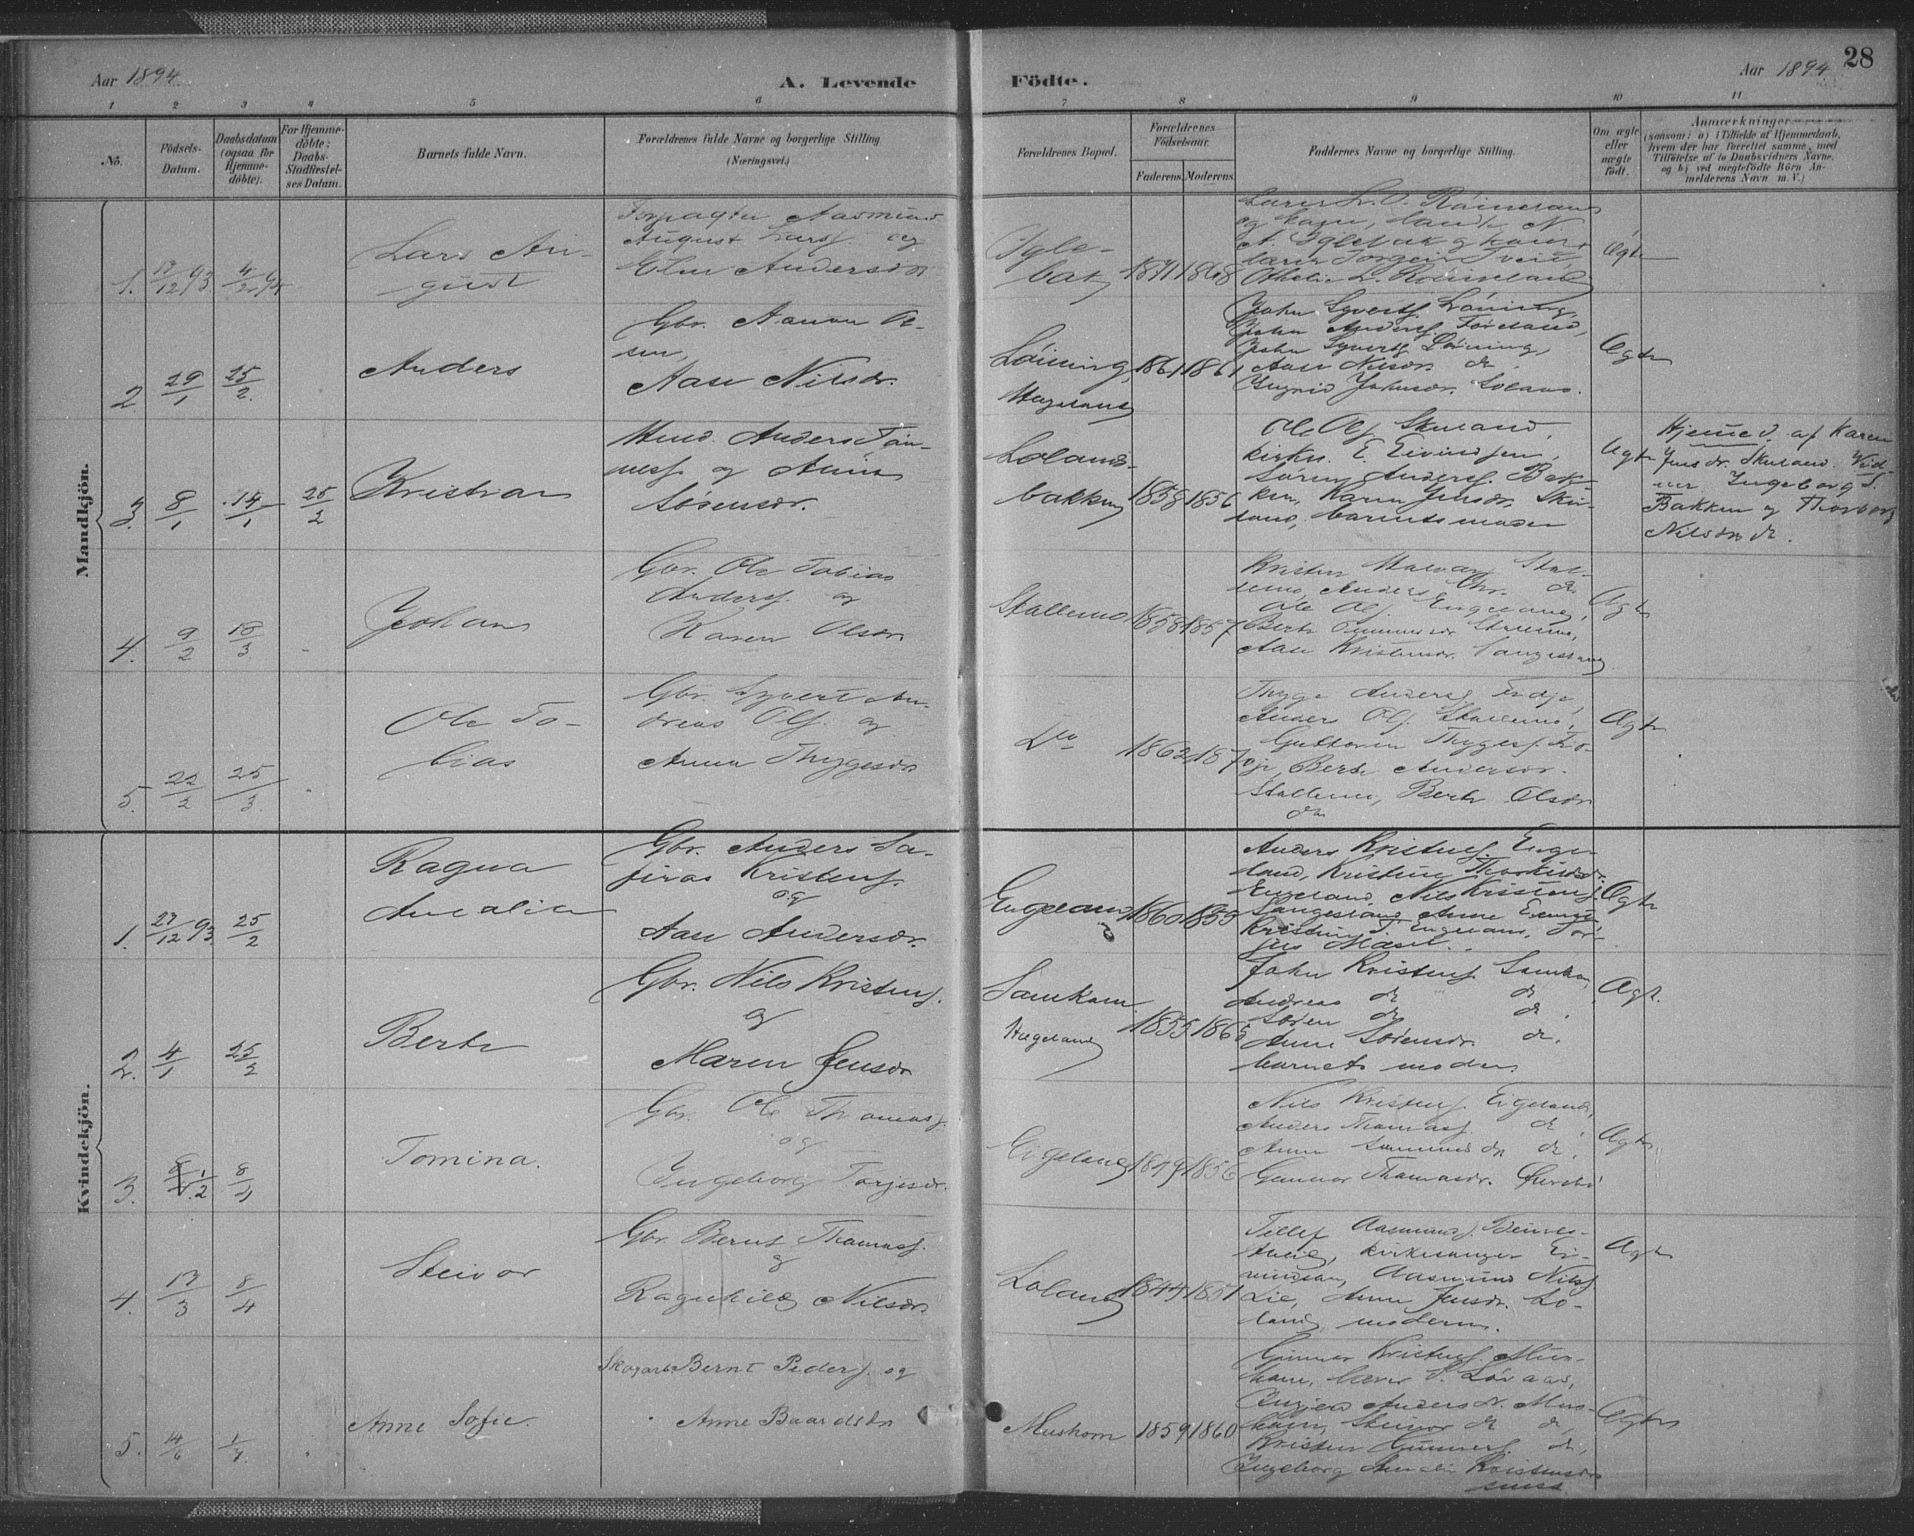 Aar 1894.
A. Levende
Födte.
Aar 1894
28
1 2 3 4 5 6 7 8 9 10 11
No.
Födsels-
Datum.
Daabsdatum
(ogsaa for
Hjemme-
döbte).
For Hjemme-
döbte:
Daabs-
Stadfæstel-
ses Datum.
Barnets fulde Navn.
Forældrenes fulde Navne og borgerlige Stilling
(Næringsvei.)
Forældrenes Bopæl.
Forældrenes
Födselsaar.
Faderens. Moderens.
Faddernes Navne og borgerlige Stilling.
Om ægte
eller
uægte
födt.
Anmærkninger
(saasom: a) i Tilfælde af Hjemmedaab,
hvem der har forrettet samme, med
Tilföielse af to Daabsvidners Navne,
og b) ved uægtefödte Börn An-
melderens Navn m. V.)
Mandkjön.
1. 17/12 93 4/2 94
Lars Au-
gust
Forpagter Aasmund
August Larss. og
Andersdr
Ygle-
bak
1871 1868
Ægte
2 29/1 25/2
Anders
Gbr. Aanon O-
sen,
Aase Nilsdr.
Löining,
Hægeland
1861 1861
John Syverts. Löining,
John Anders. Föreland,
John Syverts Löining,
Aase Nilsdr. do.
Ingrid Johnsdr.
Ægte
3. 8/1 14/1 25/2
Kristian
Anders Tön-
ness. og Anna
Sörensdr.
Lolands-
bakken
1858 1856
Ole Ols. Skuland,
kirkes. E. Eivindsen,
Sören Anders. Bak-
ken, Karen Jensdr. Sku-
land, barnets moder
Ægte
Hjemmed. af Karen
Jensdr. Skuland. Vid-
ner Ingeborg S.
Bakken og Thorborg
Nilsdr. do.
4. 9/2 18/3
Johan
Gbr. Ole Tobias
Anders. og
Karen Olsdr.
Stallemo.
1858 1857
Kristen Halvors. Stal-
lemo, Anders Chr. do.
Ole Ols. Engeland,
Berte Gunnarsdr. Stallemo,
Aase Kristensdr. Langesland
Ægte
5. 22/2 25/3
Ole To-
bias
Gbr. Syvert An-
dreas Ols. og
Anna Thygesdr
Do
1862 1870
Thyge Anders.
Anders Ols. Stallemo,
Guttorm Thygess.
Berte Andersdr.
Stallemo, Berte Olsdr
do
Ægte
Kvindekjön.
1. 27/12 93 25/2
Ragna
Amalie
Gbr. Anders Sa-
firas Kristens.
og
Aase Andersdr.
Engeland
1860 1859
Anders Kristens. Enge-
land, Kristine Thorkilsdr.
Engeland, Nils Kristens.
Langesland, Anne
Kristine T. Engeland, Tor-
jus Mæsel.
Ægte
2. 4/1 25/2
Berte
Gbr. Nils Kristens.
og
Maren Jensdr
Samkom
Hægeland
1855 1865
John Kristens. Samkom,
Andreas do do
Sören do do.
Anne Sörensdr. do.
barnets moder
Ægt.
3. 2 8/4
Tomina.
Gbr. Ole Thomass.
og
Ingeborg Torjusdr.
Eigeland
1849 1856
Nils Kristens. Eigeland,
Anders Thomass. do.
Anne do.
Gunvor Thomasdr.
Ægte
4. 17/3 8/4
Steivor
Gbr. Bernt Thomass.
og
Ragnhild Nilsdr.
Loland
1844 1851
Tellef Aasmunds.
kirkesanger Ei-
vindsen, Aasmund Nilss
Lie, Anne Jensdr. Lo-
land, moderen.
Ægte
5. 14/6 1/7
Anne Sofie.
Skogarb. Bernt Peders. og
Anne Baardsdr
Mushom
1859 1860
Gunnar Kristens. Mus-
hom,
Anders N. Mus-
hom, do do,
Kristen Gunnars. do,
Ingeborg Amalie Kristensdr
Ægte